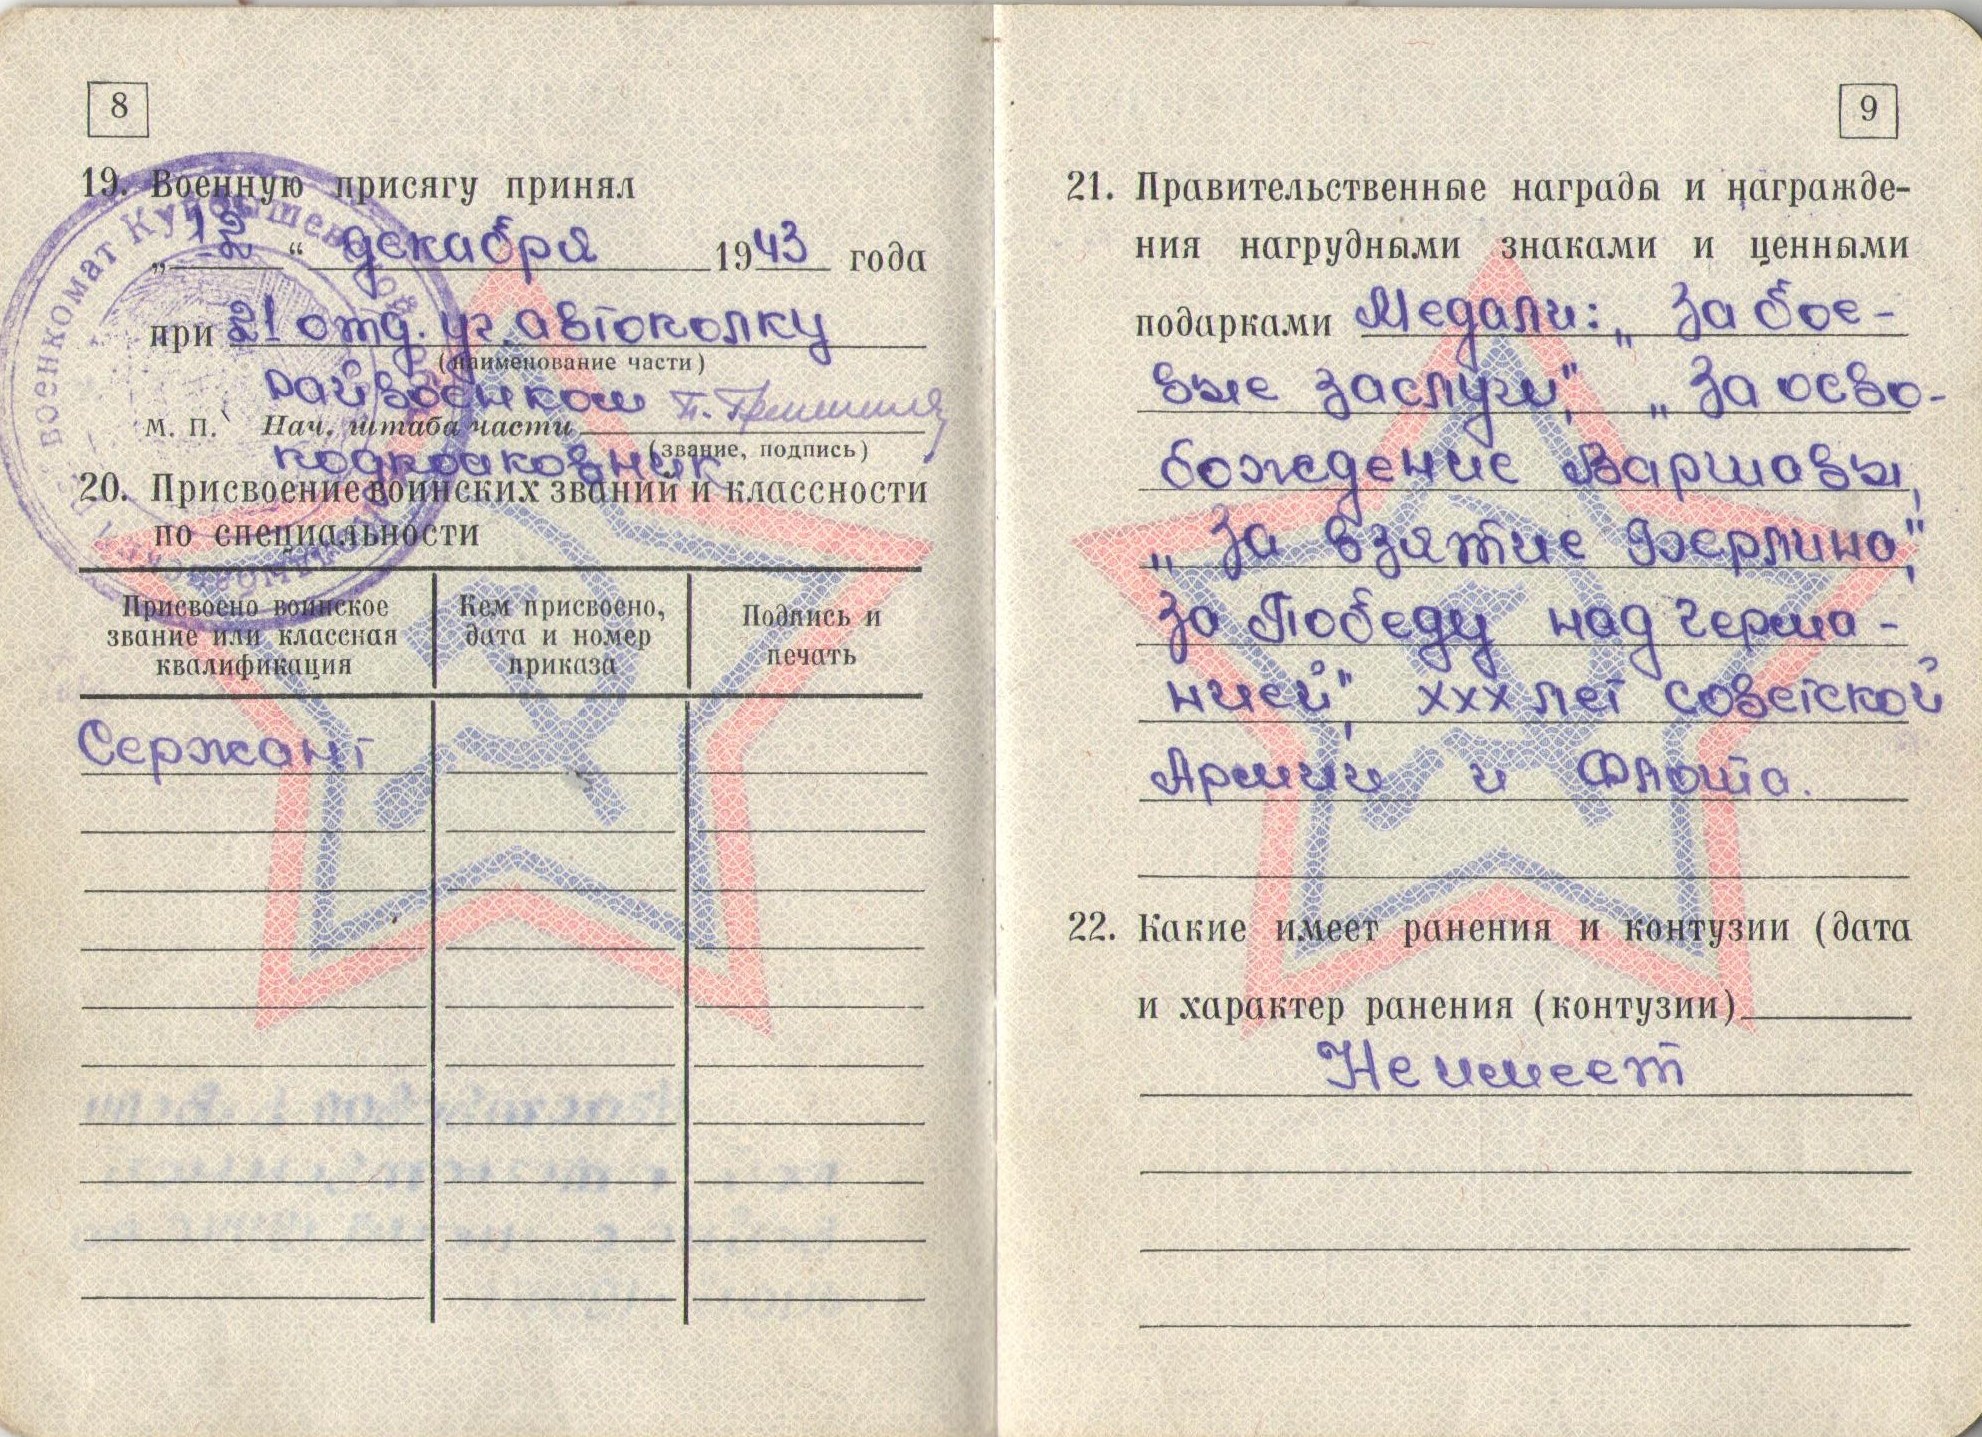 8
19. Военную присягу принял
„12“ декабря 1943 года
при 21 отд. уг. автополку
(наименование части)
Райвоенком
М. П. Нач. штаба части
(звание, подпись)
подполковник
20. Присвоение воинских званий и классности
по специальности
Присвоено воинское звание или классная квалификация
Кем присвоено, дата и номер приказа
Подпись и печать
Сержант
9
21. Правительственные награды и награжде-
ния нагрудными знаками и ценными
подарками Медали: „За бое-
вые заслуги", „За осво-
бождение Варшавы,
„За взятие Берлина",
За Победу над Герма-
нией", ХХХ лет Советской
Армии и Флота.
22. Какие имеет ранения и контузии (дата
и характер ранения (контузии)
Не имеет